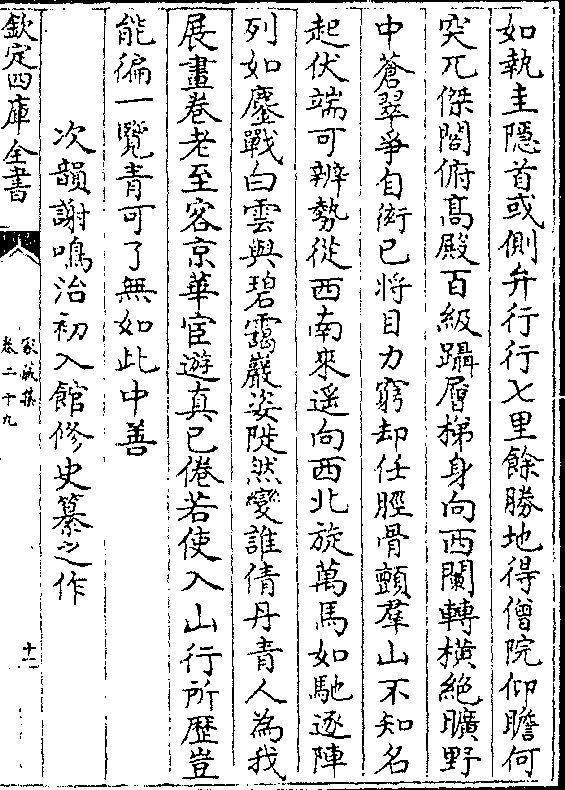 如執圭隱首或側弁行行七里餘勝地得僧院仰瞻何
突兀傑閣俯髙殿百級躡層梯身向西闌轉橫絶曠野
中蒼翠爭自衒已将目力窮却任脛骨顫羣山不知名
起伏端可辨勢從西南來遥向西北旋萬馬如馳逐陣
列如鏖戰白雲與碧靄巖姿陡然變誰倩丹青人為我
展畫卷老至客京華宦遊真已倦若使入山行所歴豈
能徧一覽青可了無如此中善
次韻謝鳴治初入館修史纂之作
欽定四庫全書
家藏集
卷二十九
十一